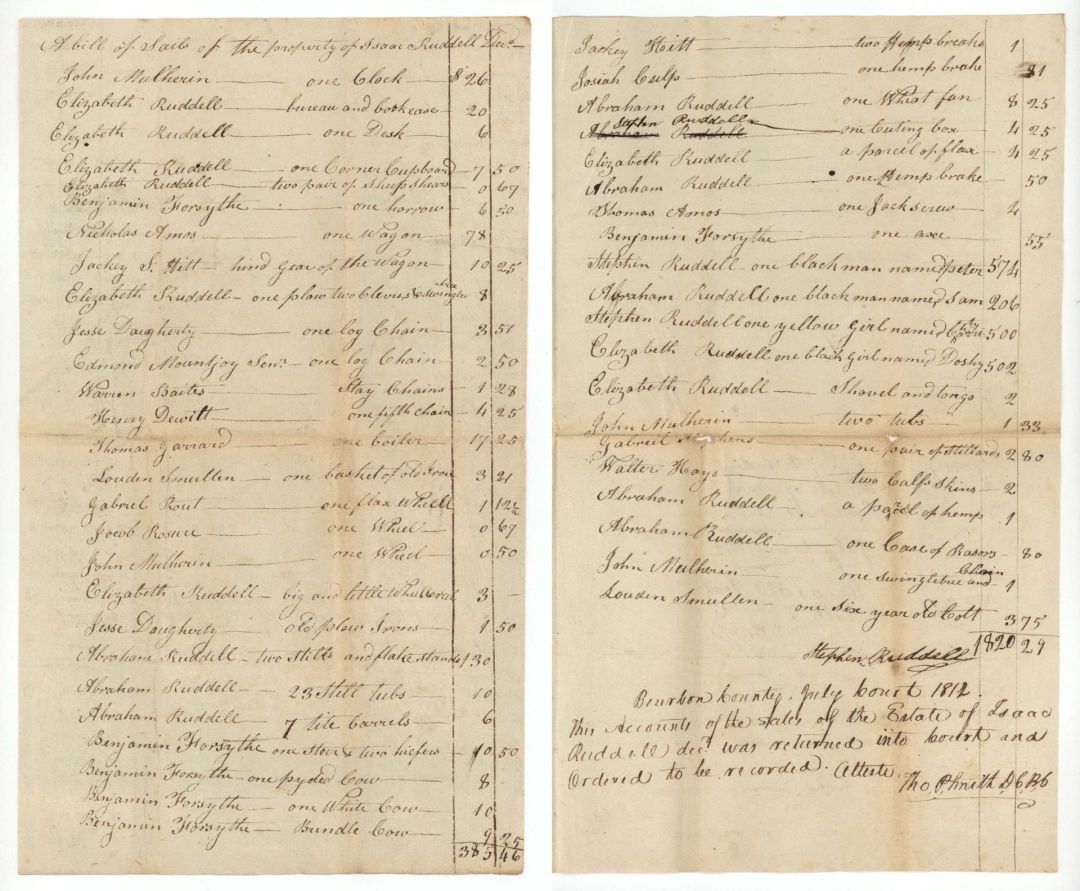 A bill of Sails of the property of Isaac Ruddell Decd
John Mulherin — one Clock — $ 26
Elizabeth Ruddell — bureau and bookcase 20
Elizabeth Ruddell — one Desk — 6
Elizabeth Ruddell — one Corner Cupboard — 7 50
Elizabeth Ruddell — two pair of Sheep Shears 0 69
Benjamin Forsythe — one harrow — 6 50
Nicholas Amos — one Wagon — 78
Jackey S. Hitt — hind Gear of the Wagon — 10 25
Elizabeth Ruddell — one plow two Clevis & swingletree 8
Jesse Daugherty — one log Chain — 3 51
Edmond Mountjoy Senr. — one log Chain — 2 50
Warren Baites — Stay Chains — 1 28
Henry Dewitt — one fifth chain — 4 25
Thomas Garrard — one boiler — 17 25
Louden Smullen — one basket of old Iron 3 21
Gabriel Rout — one flax Wheell 1 12½
Jacob — one Wheel 0 69
John Mulherin — one Wheel — 0 50
Elizabeth Ruddell — big and little Wheel & reel 3 —
Jesse Daugherty — old plow Irons — 1 50
Abraham Ruddell — two Stills and flake stands 130
Abraham Ruddell — 23 Still tubs — 10
Abraham Ruddell — 7 tite barrels — 6
Benjamin Forsythe one Steer & two hiefers — 40 50
Benjamin Forsythe — one pyded Cow — 8
Benjamin Forsythe — one White Cow — 10
Benjamin Forsythe — Brindle Cow — 9 25
385 46
Jackey Hitt — two Hemp breaks 1
Josiah Culp — one hemp brake 81
Abraham Ruddell — one Wheat fan 8 25
Abraham Ruddell Stephen Ruddell — one Cuting box — 4 25
Elizabeth Ruddell — a parcel of flax — 4 25
Abraham Ruddell — one Hemp brake — 50
Thomas Amos — one Jackscrew — 4
Benjamin Forsythe — one axe — 55
Stephen Ruddell one black man named peter 574
Abraham Ruddell one black man named Sam 206
Stephen Ruddell one yellow Girl named 500
Elizabeth Ruddell one black Girl named Doshy 502
Elizabeth Ruddell — Shovel and tongs — 2
John Mulherin — two tubs — 1 33
Gabriel — one pair of Stillards 2 80
Walter Hays — two Calfs Skins — 2
Abraham Ruddell — a parcel of hemp 1
Abraham Ruddell — one Case of Rasors — 80
John Mulherin — one swingletree and Chain — 1
Louden Smullen — one Six year old Colt 3 75
1820 29
Stephen Ruddell
Bourbon County, July Court 1812.
This Accounts of the Sales of the Estate of Isaac
Ruddell decd. was returned into Court and
Ordered to be recorded. Atteste.
Tho P Smith D C B C